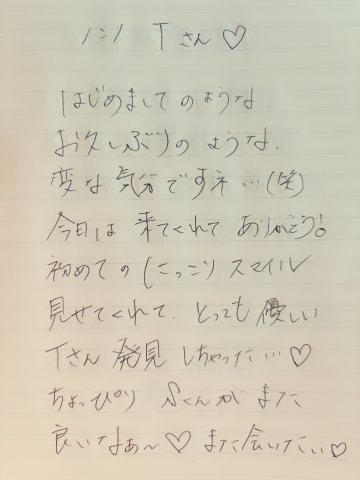 Tさん♡
はじめましてのような.
お久しぶりのような.
変な気分ですネ…(笑)
今日は来てくれてありがとう!
初めてのにっこりスマイル
見せてくれて.とっても優しい
Tさん発見しちゃった…♡
ちょっぴりSくんがまた
良いなぁ〜♡また会いたい♡